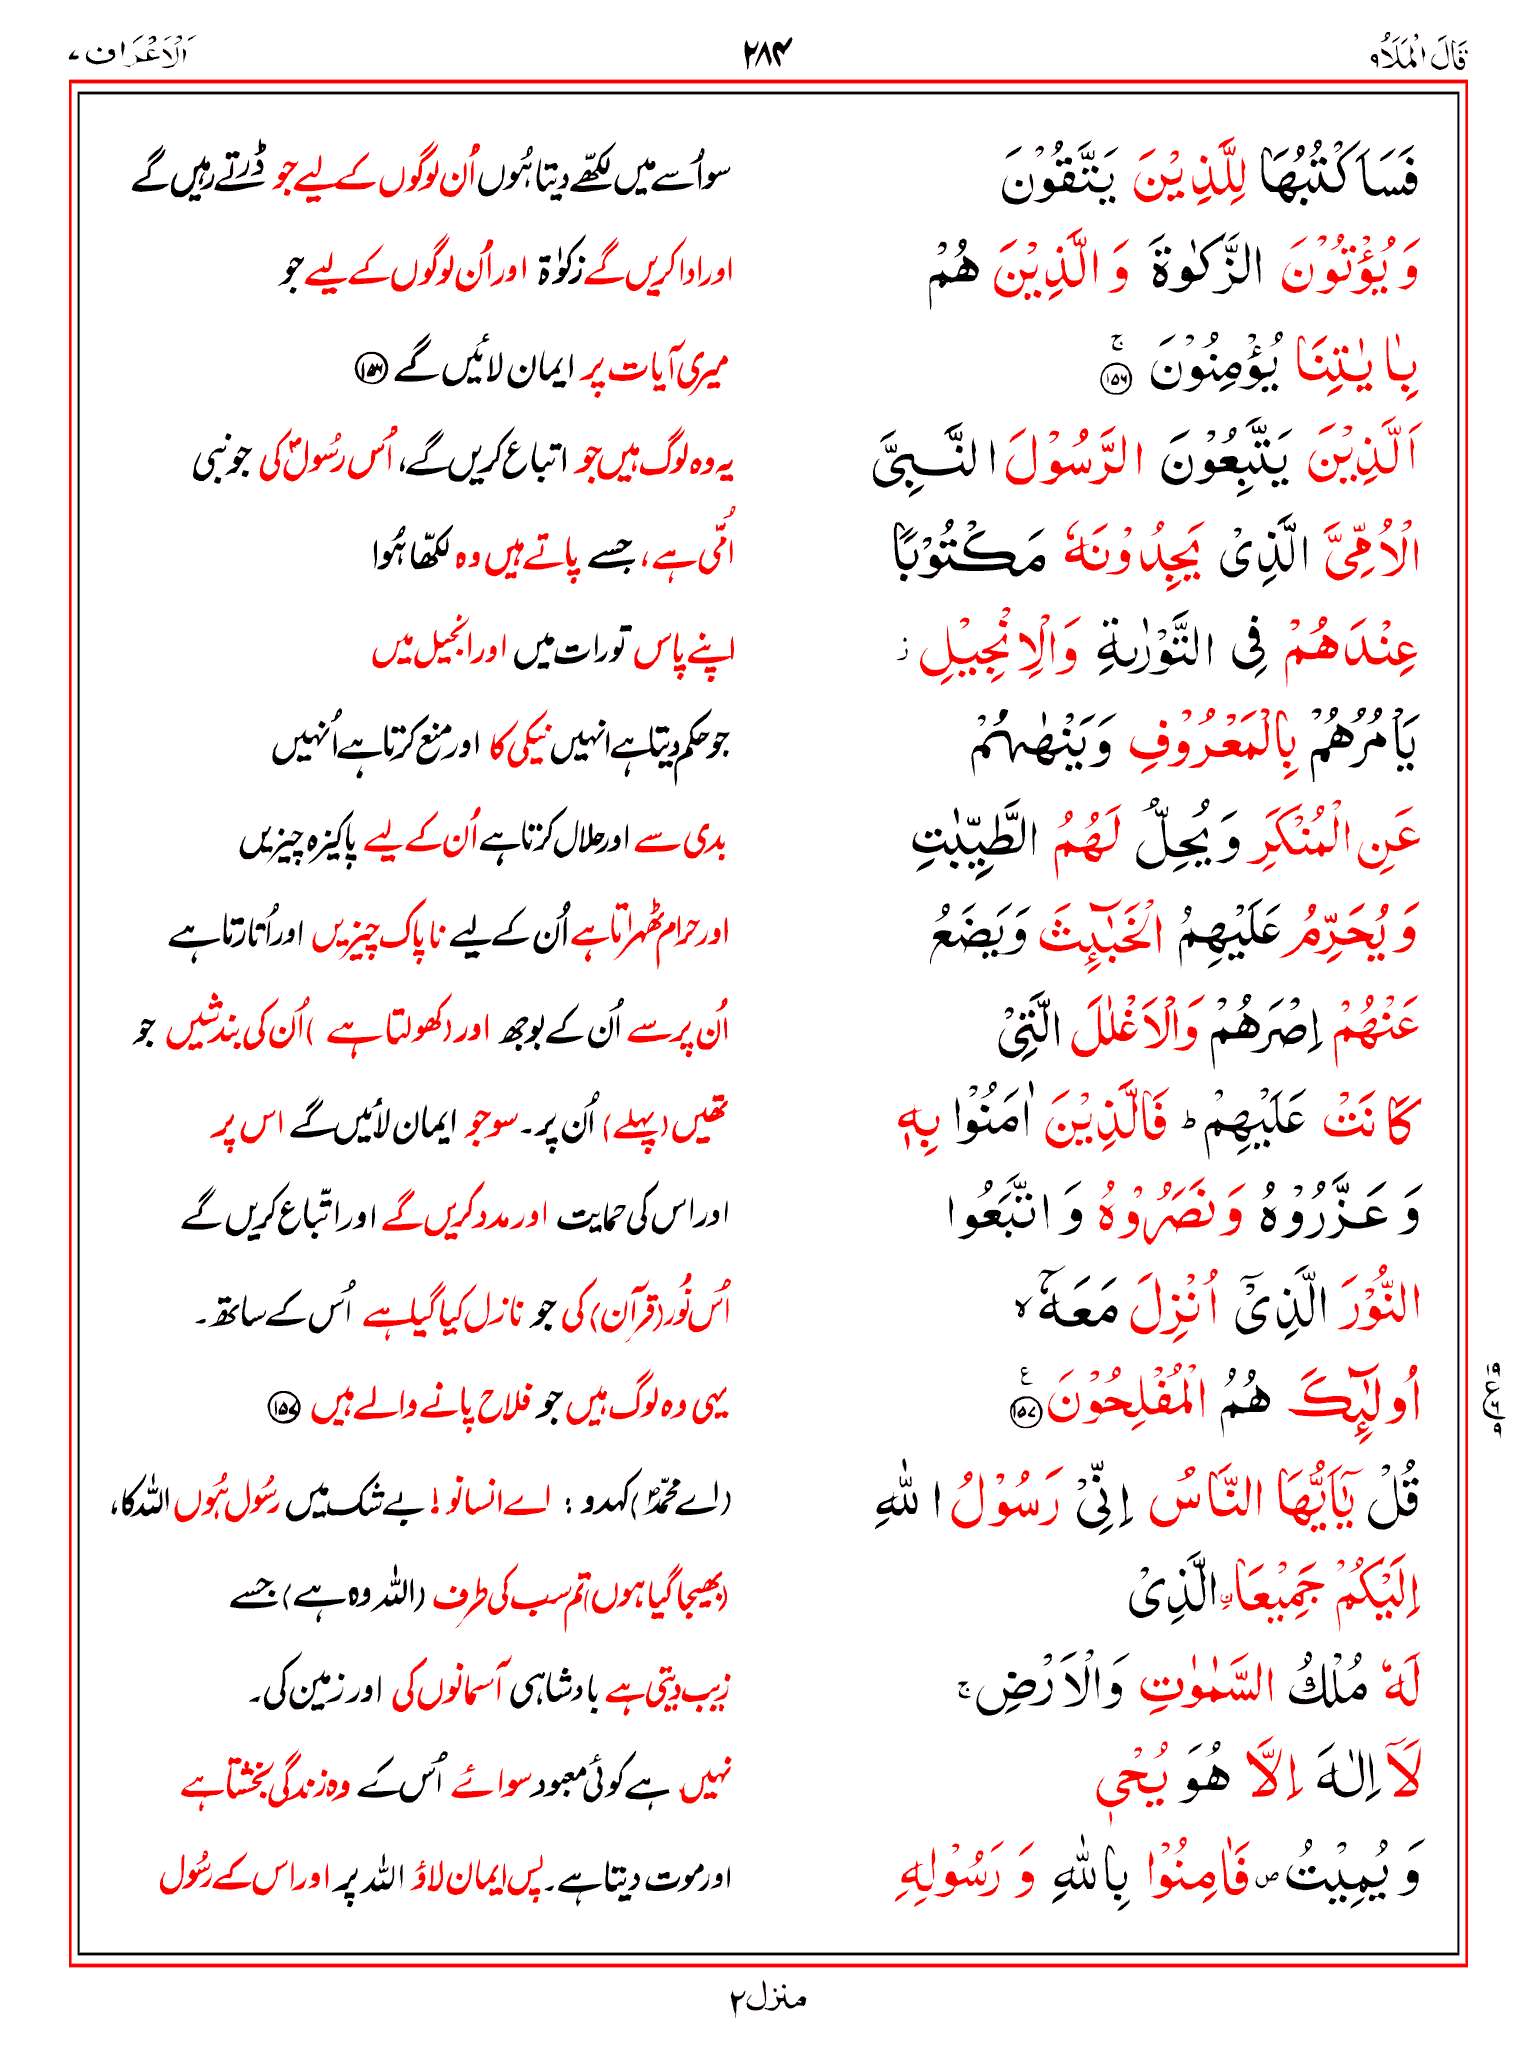 قَالَ الْمَلَاُ ۹
۲۸۴
اَلْاَعْرَاف ۷
فَسَاَكْتُبُهَا لِلَّذِيْنَ يَتَّقُوْنَ
سو اُسے میں لکھّے دیتا ہُوں اُن لوگوں کے لیے جو ڈرتے رہیں گے
وَ يُؤْتُوْنَ الزَّكٰوةَ وَ الَّذِيْنَ هُمْ
اور ادا کریں گے زکوٰۃ اور اُن لوگوں کے لیے جو
بِاٰيٰتِنَا يُؤْمِنُوْنَ ۚ ﴿۱۵۶﴾
میری آیات پر ایمان لائیں گے ﴿۱۵۳﴾
اَلَّذِيْنَ يَتَّبِعُوْنَ الرَّسُوْلَ النَّبِيَّ
یہ وہ لوگ ہیں جو اتباع کریں گے، اُس رسُولؐ کی جو نبی
الْاُمِّيَّ الَّذِيْ يَجِدُوْنَهٗ مَكْتُوْبًا
اُمّی ہے، جسے پاتے ہیں وہ لکھّا ہُوا
عِنْدَهُمْ فِي التَّوْرٰىةِ وَالْاِنْجِيْلِ ز
اپنے پاس تورات میں اور انجیل میں
يَاْمُرُهُمْ بِالْمَعْرُوْفِ وَيَنْهٰىهُمْ
جو حکم دیتا ہے انہیں نیکی کا اور منع کرتا ہے اُنہیں
عَنِ الْمُنْكَرِ وَ يُحِلُّ لَهُمُ الطَّيِّبٰتِ
بدی سے اور حلال کرتا ہے اُن کے لیے پاکیزہ چیزیں
وَ يُحَرِّمُ عَلَيْهِمُ الْخَبٰٓئِثَ وَ يَضَعُ
اور حرام ٹھہراتا ہے اُن کے لیے ناپاک چیزیں اور اُتارتا ہے
عَنْهُمْ اِصْرَهُمْ وَالْاَغْلٰلَ الَّتِيْ
اُن پر سے اُن کے بوجھ اور (کھولتا ہے) اُن کی بندشیں جو
كَانَتْ عَلَيْهِمْ ؕ فَالَّذِيْنَ اٰمَنُوْا بِهٖ
تھیں (پہلے) اُن پر۔ سو جو ایمان لائیں گے اس پر
وَ عَزَّرُوْهُ وَ نَصَرُوْهُ وَ اتَّبَعُوا
اور اس کی حمایت اور مدد کریں گے اور اتّباع کریں گے
النُّوْرَ الَّذِيْٓ اُنْزِلَ مَعَهٗٓ ۙ
اُس نُور (قرآن) کی جو نازل کیا گیا ہے اُس کے ساتھ۔
اُولٰٓئِكَ هُمُ الْمُفْلِحُوْنَ ۧ ﴿۱۵۷﴾
یہی وہ لوگ ہیں جو فلاح پانے والے ہیں ﴿۱۵۷﴾
قُلْ يٰٓاَيُّهَا النَّاسُ اِنِّيْ رَسُوْلُ اللّٰهِ
(اے محمدؐ) کہدو : اے انسانو! بے شک میں رسُول ہُوں اللہ کا،
اِلَيْكُمْ جَمِيْعَا ۨ الَّذِيْ
(بھیجا گیا ہوں) تم سب کی طرف (اللہ وہ ہے) جسے
لَهٗ مُلْكُ السَّمٰوٰتِ وَالْاَرْضِ ۚ
زیب دیتی ہے بادشاہی آسمانوں کی اور زمین کی۔
لَآ اِلٰهَ اِلَّا هُوَ يُحْيٖ
نہیں ہے کوئی معبود سوائے اُس کے وہ زندگی بخشتا ہے
وَ يُمِيْتُ ص فَاٰمِنُوْا بِاللّٰهِ وَ رَسُوْلِهِ
اور موت دیتا ہے۔ پس ایمان لاؤ اللہ پر اور اس کے رسُول
منزل ۲